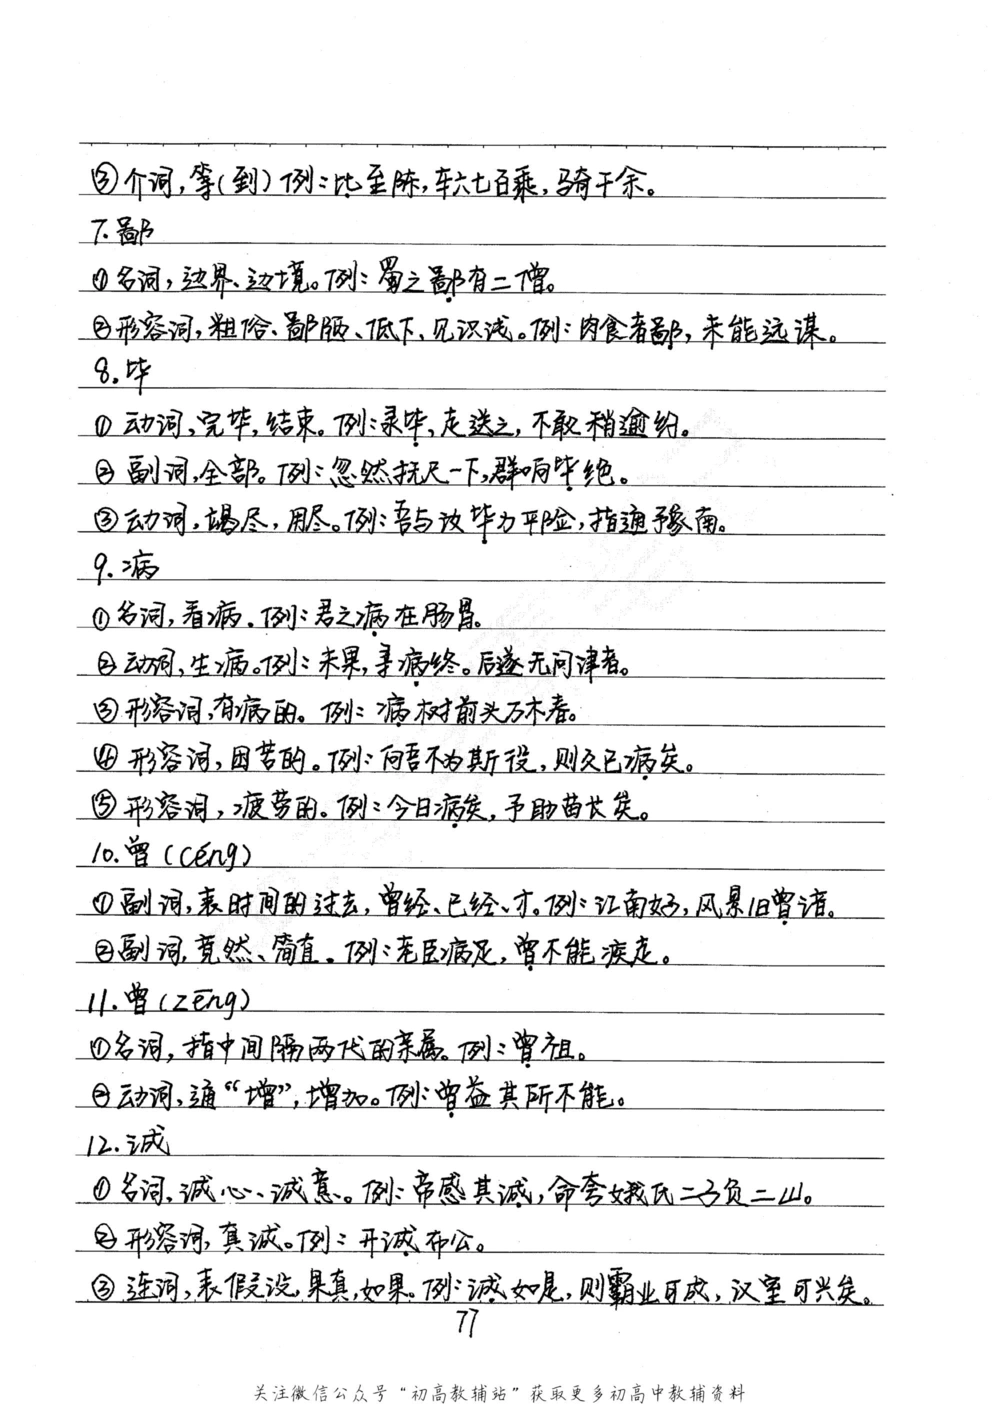 ⑤介词,等(到)例:比至陈,车六七百乘,骑千余。
7.鄙
①名词,边界、边境。例:蜀之鄙有二僧。
②形容词,粗俗、鄙陋、低下、见识浅。例:肉食者鄙,未能远谋。
8.毕
①动词,完毕,结束。例:录毕,走送之,不敢稍逾约。
②副词,全部。例:忽然抚尺一下,群响毕绝。
③动词,竭尽,用尽。例:吾与汝毕力平险,指通豫南。
9.病
①名词,看病.例:君之病在肠胃。
②动词,生病。例:未果,寻病终。后遂无问津者。
③形容词,有病的。例:病树前头万木春。
④形容词,困苦的。例:向吾不为斯役,则久已病矣。
⑤形容词,疲劳的。例:今日病矣,予助苗长矣。
10.曾(céng)
①副词,表时间的过去,曾经、已经、才。例:江南好,风景旧曾谙。
②副词,竟然、简直.例:老臣病足,曾不能疾走。
11.曾(zēng)
①名词,指中间隔两代的亲属。例:曾祖。
②动词,通“增”,增加。例:曾益其所不能。
12.诚
①名词,诚心、诚意。例:帝感其诚,命夸娥氏二子负二山。
②形容词,真诚。例:开诚布公。
③连词,表假设,果真,如果。例:诚如是,则霸业可成,汉室可兴矣。
77
关注微信公众号“初高教辅站”获取更多初高中教辅资料